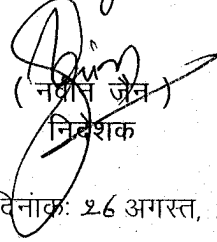 ( नवीन जैन )
निदेशक
दिनांकः 26 अगस्त,